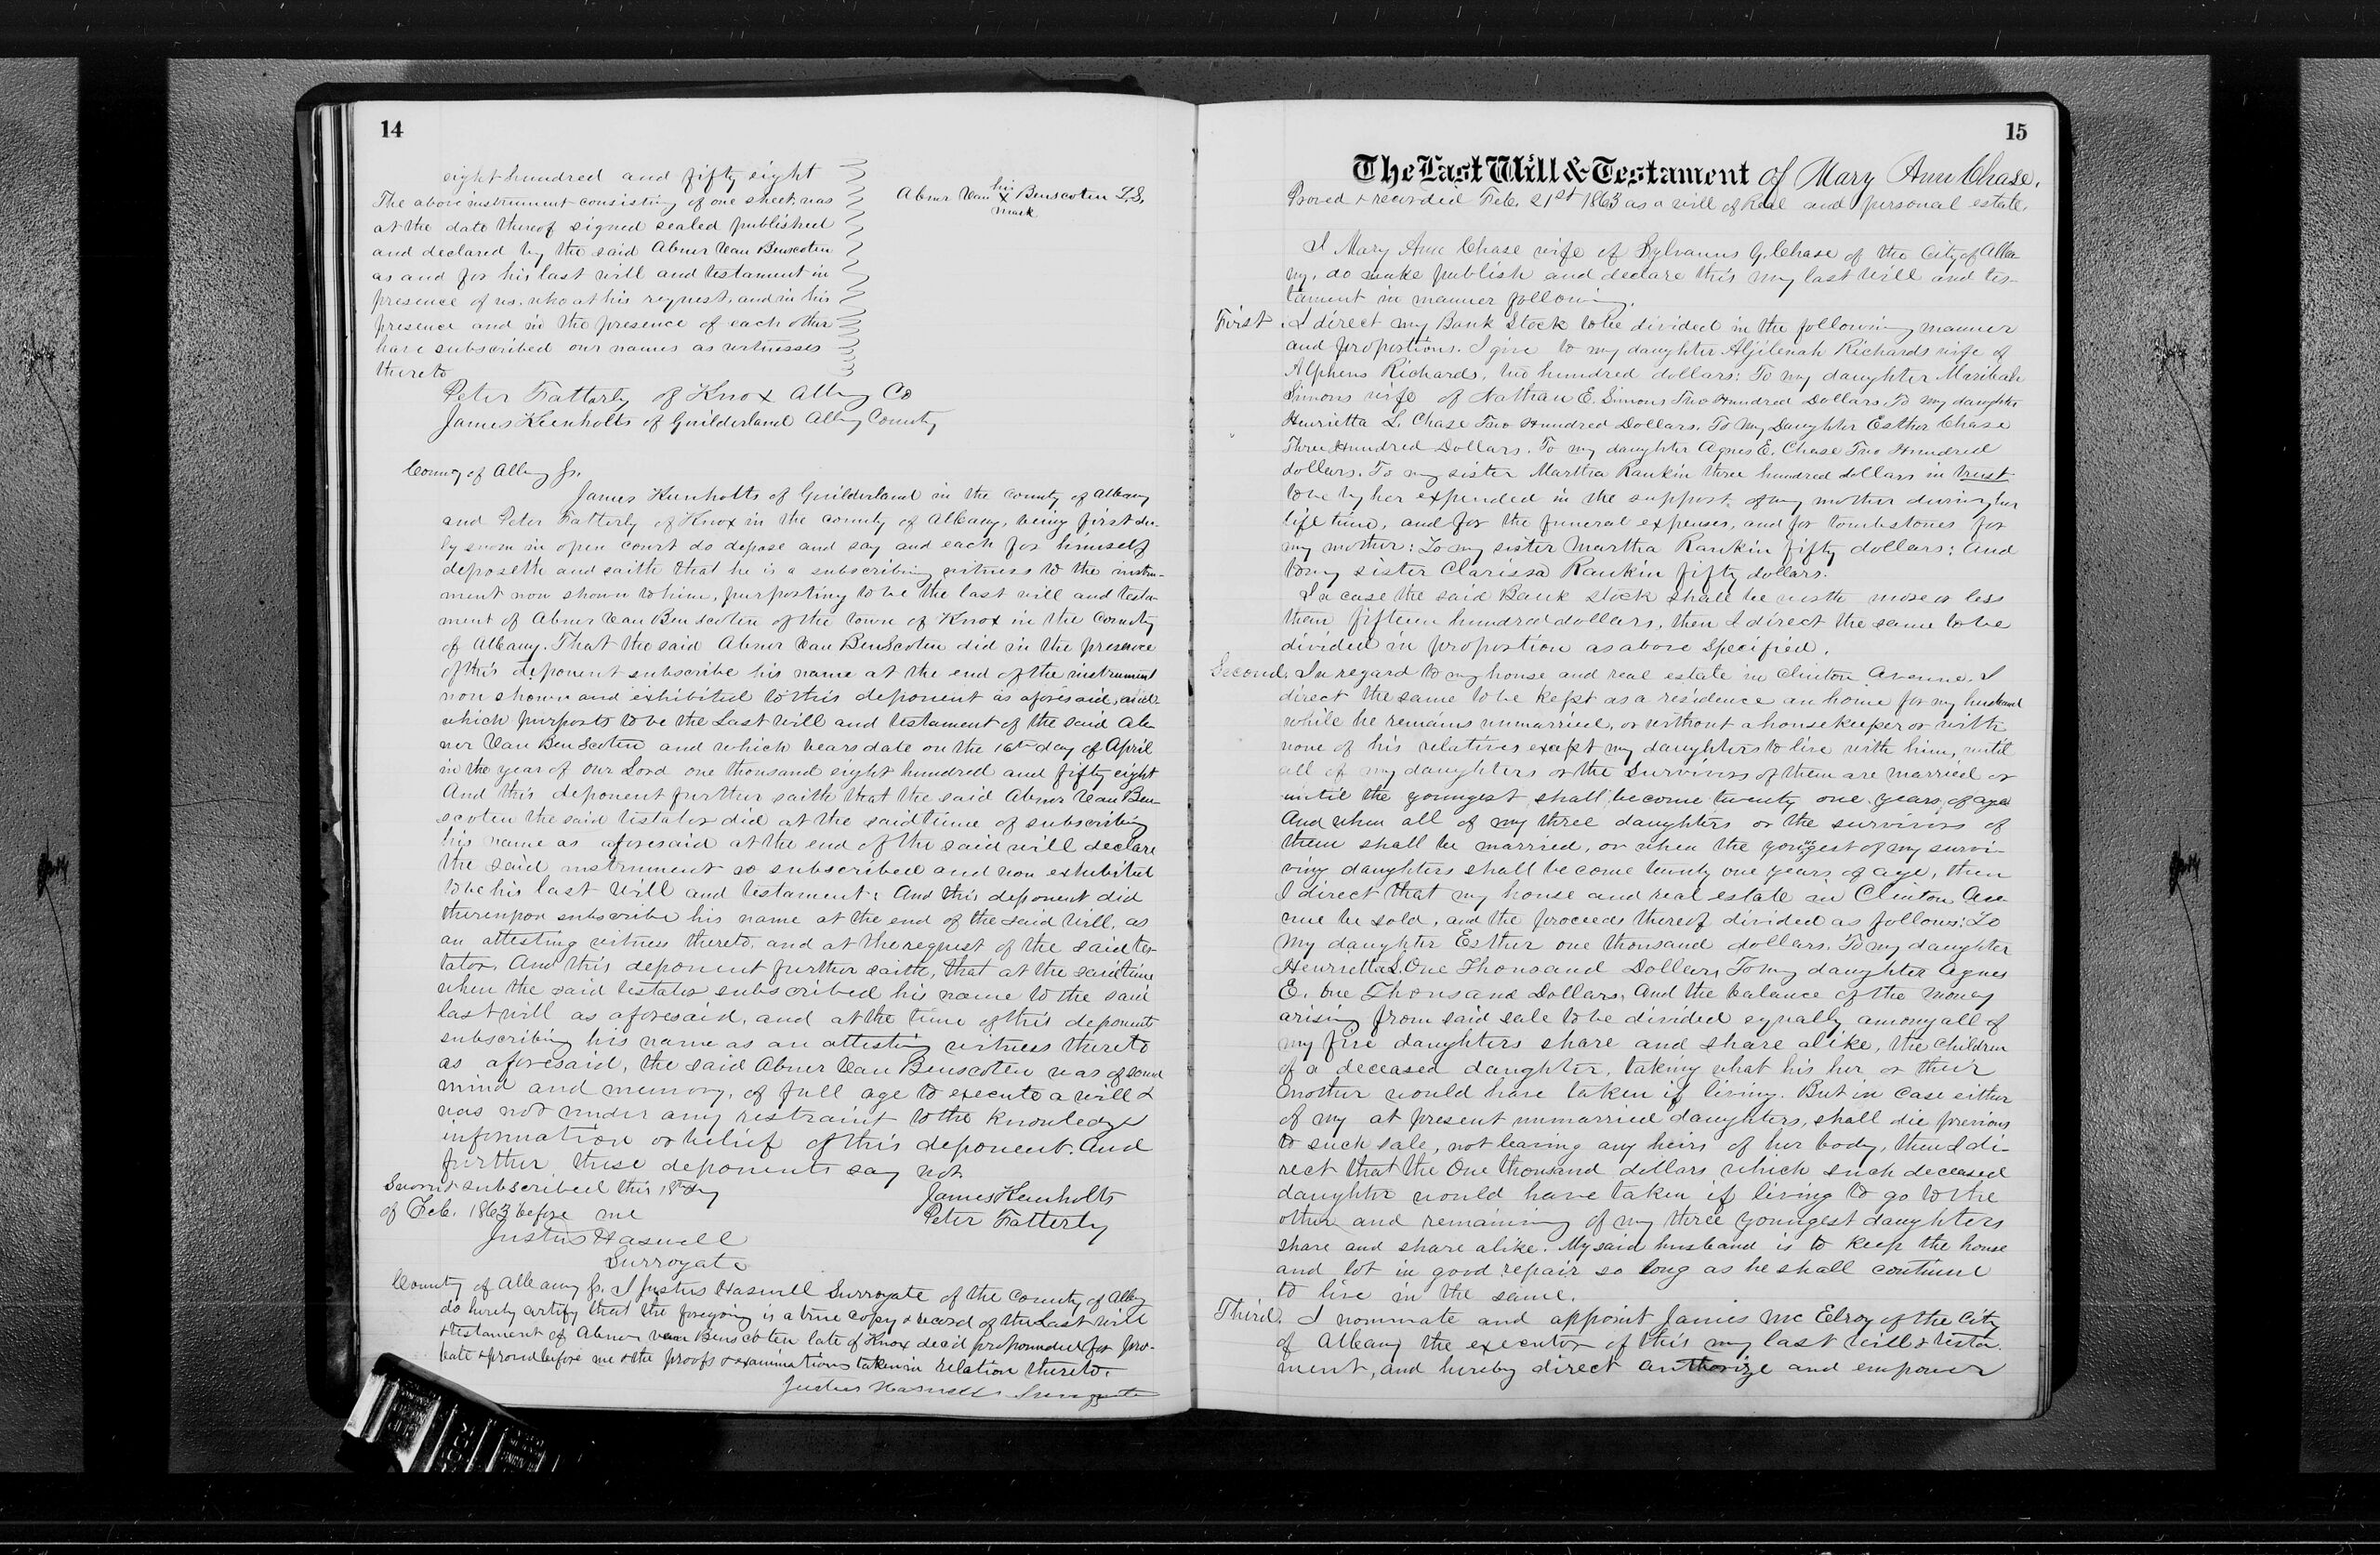 14
eight hundred and fifty eight
The above instrument consisting of one sheet, was
at the date thereof signed sealed published
and declared by the said Abner Van Benscoten
as and for his last will and testament in
presence of us, who at his request, and in his
presence and in the presence of each other
have subscribed our names as witnesses
thereto
his
Abner Van X Benscoten L.S.
mark
Peter Fatterly of Knox Albany Co
James Keenholts of Guilderland Albany County
County of Albany Ss.
James Keenholts of Guilderland in the county of Albany
and Peter Fatterly of Knox in the county of Albany, being first du-
ly sworn in open court do depose and say and each for himself
deposeth and saith that he is a subscribing witness to the instru-
ment now shown to him, purporting to be the last will and testa-
ment of Abner Van Ben Scoten of the town of Knox in the County
of Albany. That the said Abner Van BenScoten did in the presence
of this deponent subscribe his name at the end of the instrument
now shown and exhibited to this deponent as aforesaid, and
which purports to be the Last will and testament of the said Ab-
ner Van Ben Scoten and which bears date on the 16th day of April
in the year of our Lord one thousand eight hundred and fifty eight
And this deponent further saith that the said Abner Van Ben-
scoten the said testator did at the said time of subscribing
his name as aforesaid at the end of the said will declare
the said instrument so subscribed and now exhibited
to be his last will and testament: And this deponent did
thereupon subscribe his name at the end of the said will, as
an attesting witness thereto, and at the request of the said tes-
tator. And this deponent further saith, that at the said time
when the said testator subscribed his name to the said
last will as aforesaid, and at the time of this deponents
subscribing his name as an attesting witness thereto
as aforesaid, the said Abner Van Benscoten was of sound
mind and memory, of full age to execute a will &
was not under any restraint to the knowledge
information or belief of this deponent. And
further these deponents say not.
Sworn & subscribed this 18th day
of Feb. 1863 before me
James Keenholts
Peter Fatterly
Justus Haswell
Surrogate
County of Albany Ss. I Justus Haswell Surrogate of the County of Albany
do hereby certify that the foregoing is a true copy & record of the Last will
& testament of Abner Van Benscoten late of Knox dec'd propounded for pro-
bate & proved before me & the proofs & examinations taken in relation thereto.
Justus Haswell Surrogate
15
The Last Will & Testament of Mary Ann Chase.
Proved & recorded Feb. 21st 1863 as a will of Real and personal estate.
I Mary Ann Chase wife of Sylvanus G. Chase of the City of Alba-
ny, do make publish and declare this my last will and tes-
tament in manner following.
First. I direct my Bank Stock to be divided in the following manner
and proportions. I give to my daughter Richards wife of
Alpheus Richards, two hundred dollars: To my daughter Maribah
Simons wife of Nathan E. Simons Two Hundred Dollars. To my daughter
Henrietta L. Chase Two Hundred Dollars. To My Daughter Esther Chase
Three Hundred Dollars. To my daughter Agnes E. Chase Two Hundred
dollars. To my sister Martha Rankin three hundred dollars in trust
to be by her expended in the support of my mother during her
life time, and for the funeral expenses, and for tombstones for
my mother: To my sister Martha Rankin fifty dollars: and
to my sister Clarissa Rankin fifty dollars.
In case the said Bank stock shall be worth more or less
than fifteen hundred dollars, then I direct the same to be
divided in proportion as above specified.
Second. In regard to my house and real estate in Clinton Avenue. I
direct the same to be kept as a residence an home for my husband
while he remains unmarried, or without a housekeeper or with
none of his relatives except my daughters to live with him, until
all of my daughters or the survivors of them are married or
until the youngest shall become twenty one years of age
And when all of my three daughters or the survivors of
them shall be married, or when the youngest of my survi-
ving daughters shall become twenty one years of age, then
I direct that my house and real estate in Clinton Ave-
nue be sold, and the proceeds thereof divided as follows: To
my daughter Esther one thousand dollars. To my daughter
Henrietta L. One Thousand Dollars, To my daughter Agnes
E. One Thousand Dollars, And the balance of the money
arising from said sale to be divided equally among all of
my five daughters share and share alike, the children
of a deceased daughter, taking what his her or their
mother would have taken if living. But in case either
of my at present unmarried daughters, shall die previous
to such sale, not leaving any heirs of her body, then I di-
rect that the One thousand dollars which such deceased
daughter would have taken if living to go to the
other and remaining of my three youngest daughters
share and share alike. My said husband is to keep the house
and lot in good repair so long as he shall continue
to live in the same.
Third. I nominate and appoint James Mc Elroy of the City
of Albany the executor of this my last will & testa-
ment, and hereby direct authorize and empower